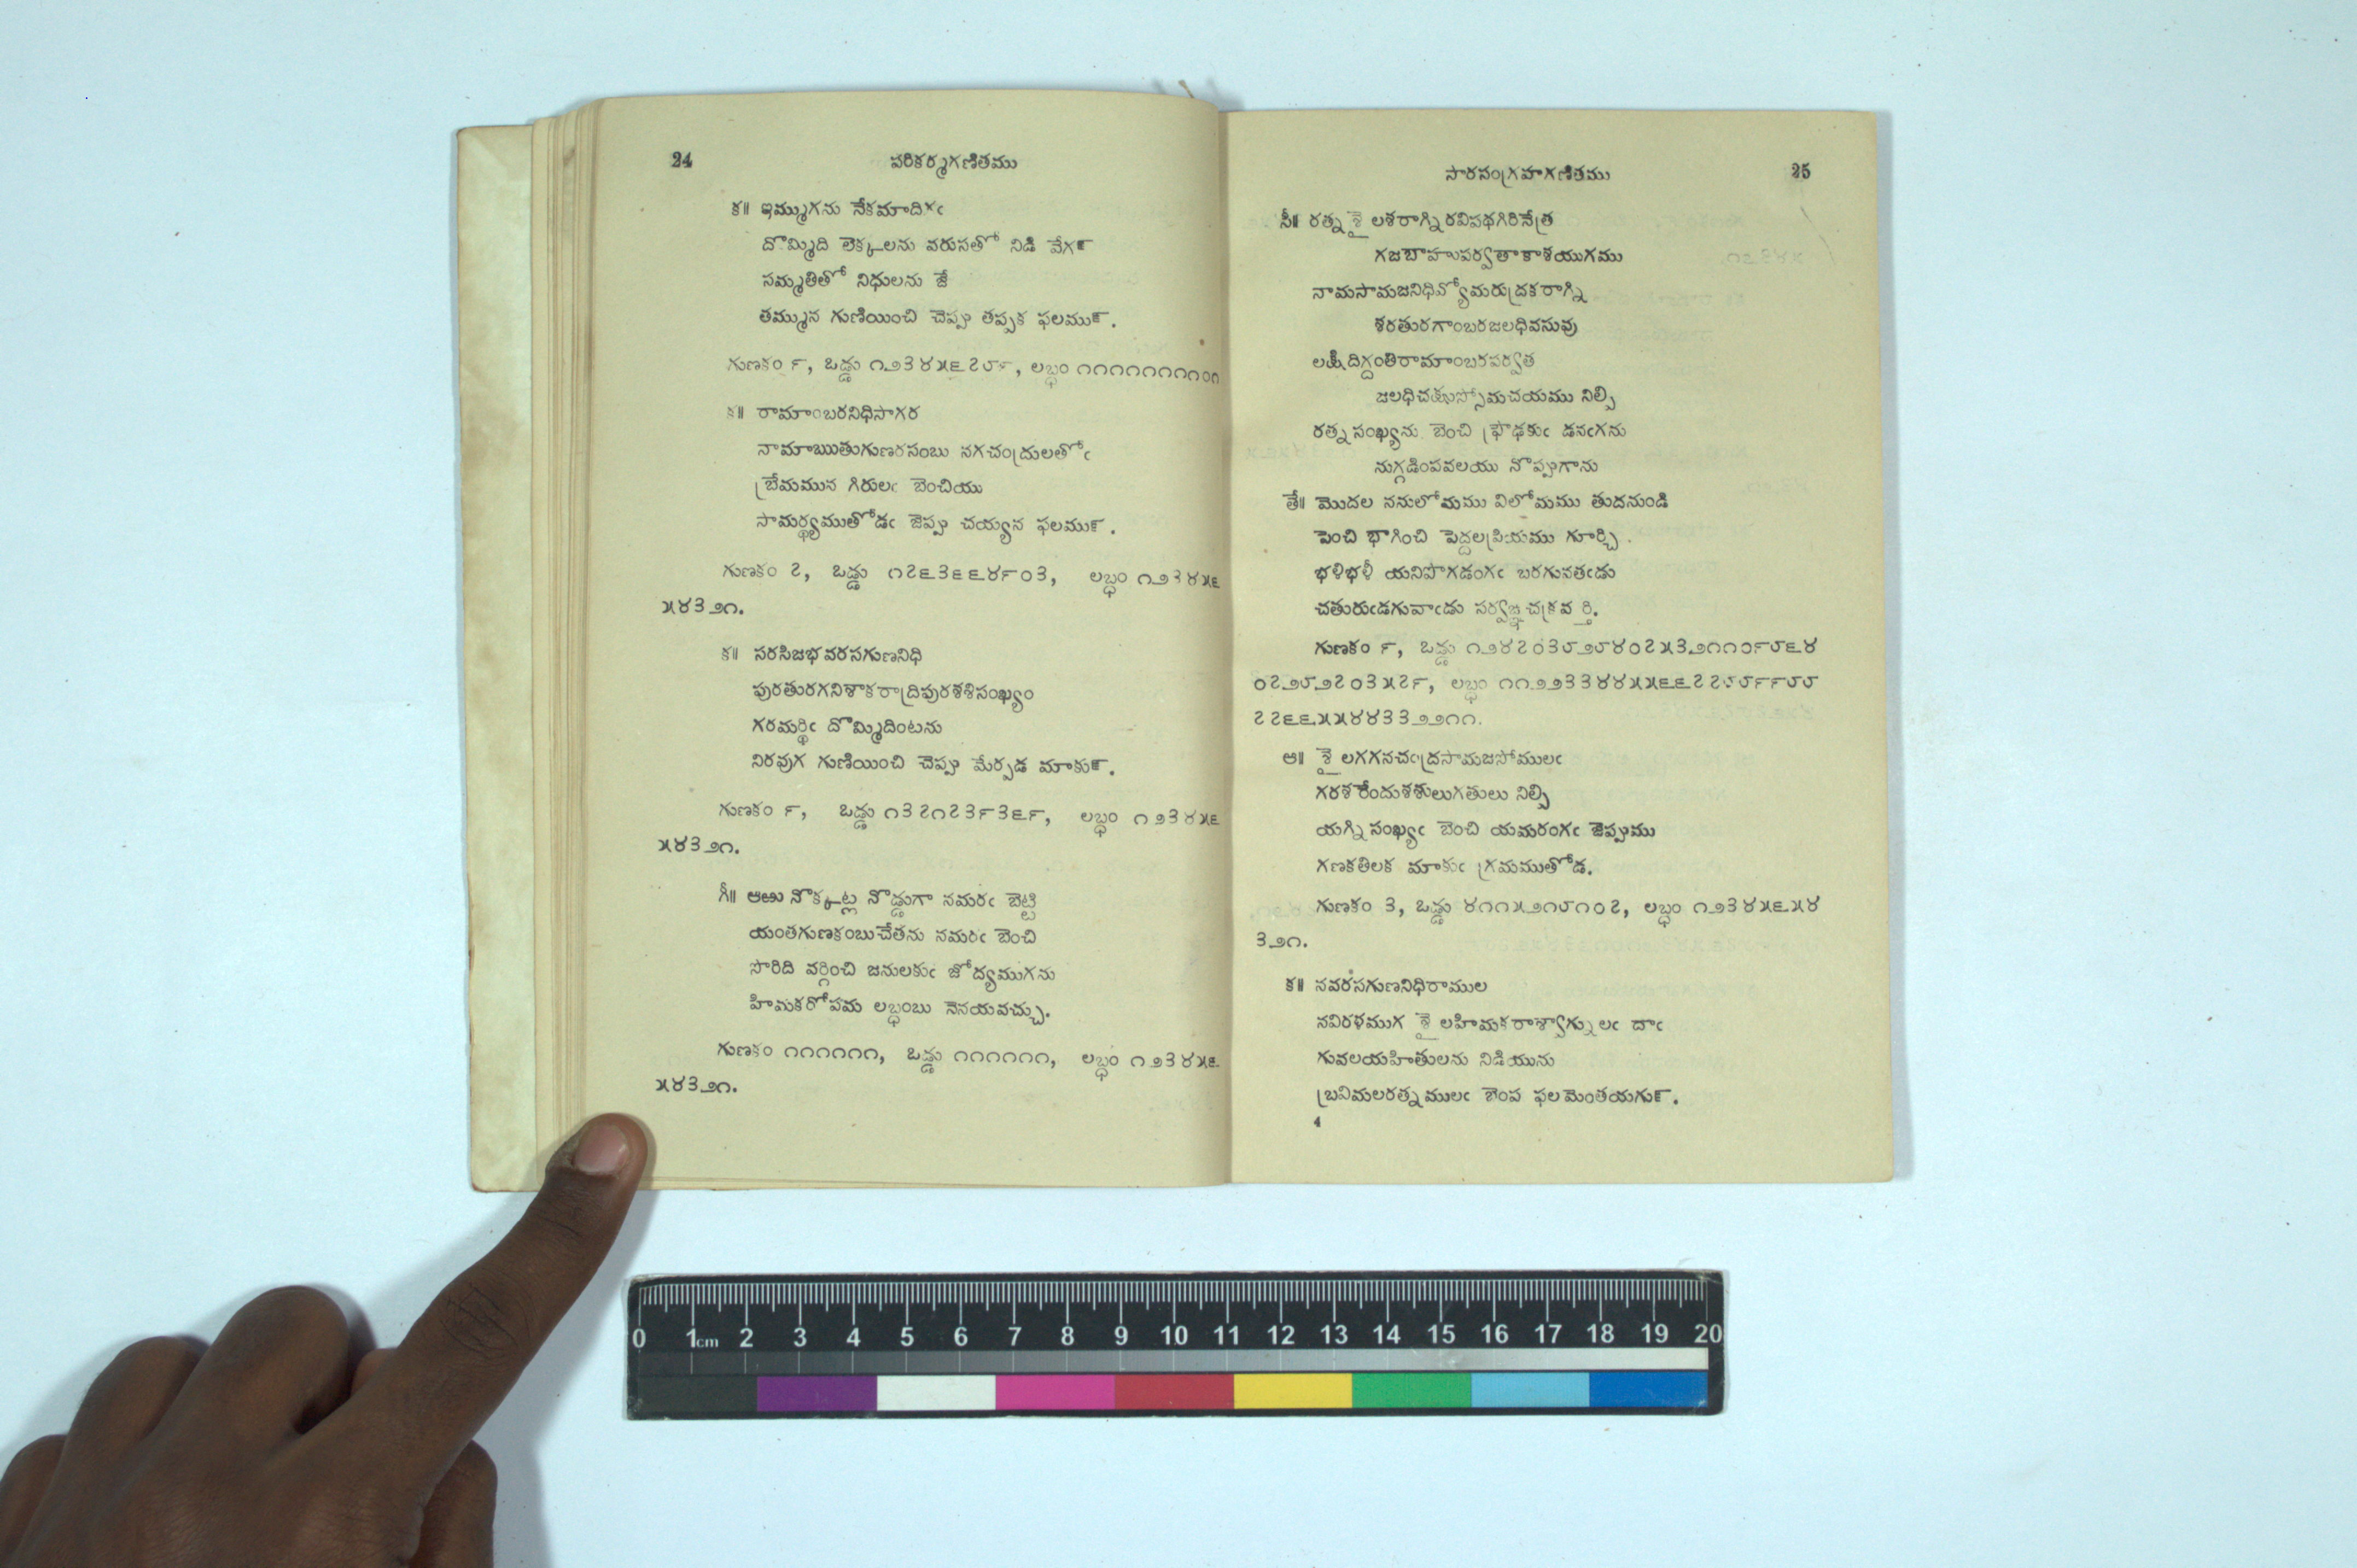 24 పరికర్మగణితము
క॥ ఇమ్ముగను నేకమాదిగఁ
దొమ్మిది లెక్కలను వరుసతో నిడి వేగ౯
సమ్మతితో నిధులను జే
తమ్మున గుణియించి చెప్పు తప్పక ఫలము౯.
గుణకం ౯, ఒడ్డు ౧౨౩౪౫౬౭౮౯, లబ్ధం ౧౧౧౧౧౧౧౧౧౦౧
క॥ రామాంబరనిధిసాగర
నామాఋతుగుణరసంబు నగచంద్రులతోఁ
బ్రేమమున గిరులఁ బెంచియు
సామర్థ్యముతోడఁ జెప్పు చయ్యన ఫలము౯.
గుణకం ౭, ఒడ్డు ౧౭౬౩౬౬౪౯౦౩, లబ్ధం ౧౨౩౪౫౬
౫౪౩౨౧.
క॥ సరసిజభవరసగుణనిధి
పురతురగనిశాకరాద్రిపురశశిసంఖ్యం
గరమర్థిఁ దొమ్మిదింటను
నిరవుగ గుణియించి చెప్పు మేర్పడ మాకు౯.
గుణకం ౯, ఒడ్డు ౧౩౭౧౭౩౯౩౬౯, లబ్ధం ౧౨౩౪౫౬
౫౪౩౨౧.
గీ॥ ఆఱు నొక్కట్ల నొడ్డుగా నమరఁ బెట్టి
యంతగుణకంబుచేతను నమరఁ బెంచి
సొరిది వర్గించి జనులకుఁ జోద్యముగను
హిమకరోపమ లబ్ధంబు నెనయవచ్చు.
గుణకం ౧౧౧౧౧౧, ఒడ్డు ౧౧౧౧౧౧, లబ్ధం ౧౨౩౪౫౬
౫౪౩౨౧.
సారసంగ్రహగణితము 25
సీ॥ రత్నశైలశరాగ్నిరవిపథగిరినేత్ర
గజబాహుపర్వతాకాశయుగము
నామసామజనిధివ్యోమరుద్రకరాగ్ని
శరతురగాంబరజలధివసువు
లక్షిదిగ్దంతిరామాంబరపర్వత
జలధిచక్షుస్సోమచయము నిల్పి
రత్నసంఖ్యను బెంచి ప్రౌఢకుఁ డనఁగను
నుగ్గడింపవలయు నొప్పుగాను
తే॥ మొదల ననులోమము విలోమము తుదనుండి
పెంచి భాగించి పెద్దలప్రియము గూర్చి
భళిభళీ యనిపొగడంగఁ బరగునతఁడు
చతురుఁడగువాఁడు సర్వజ్ఞచక్రవర్తి.
గుణకం ౯, ఒడ్డు ౧౨౪౭౦౩౮౨౮౪౦౭౫౩౨౧౧౦౯౮౬౪
౦౭౨౮౨౭౦౩౫౭౯, లబ్ధం ౧౧౨౨౩౩౪౪౫౫౬౬౭౭౮౮౯౯౮౮
౭౭౬౬౫౫౪౪౩౩౨౨౧౧.
ఆ॥ శైలగగనచంద్రసామజసోములఁ
గరశరేందుశశులుగతులు నిల్పి
యగ్నిసంఖ్యఁ బెంచి యమరంగఁ జెప్పుము
గణకతిలక మాకుఁ గ్రమముతోడ.
గుణకం ౩, ఒడ్డు ౪౧౧౫౨౧౮౧౦౭, లబ్ధం ౧౨౩౪౫౬౫౪
౩౨౧.
క॥ నవరసగుణనిధిరాముల
నవిరళముగ శైలహిమకరాశ్వాగ్నులఁ దాఁ
గువలయహితులను నిడియును
బ్రవిమలరత్నములఁ బెంప ఫలమెంతయగు౯.
4
0 1cm 2 3 4 5 6 7 8 9 10 11 12 13 14 15 16 17 18 19 20